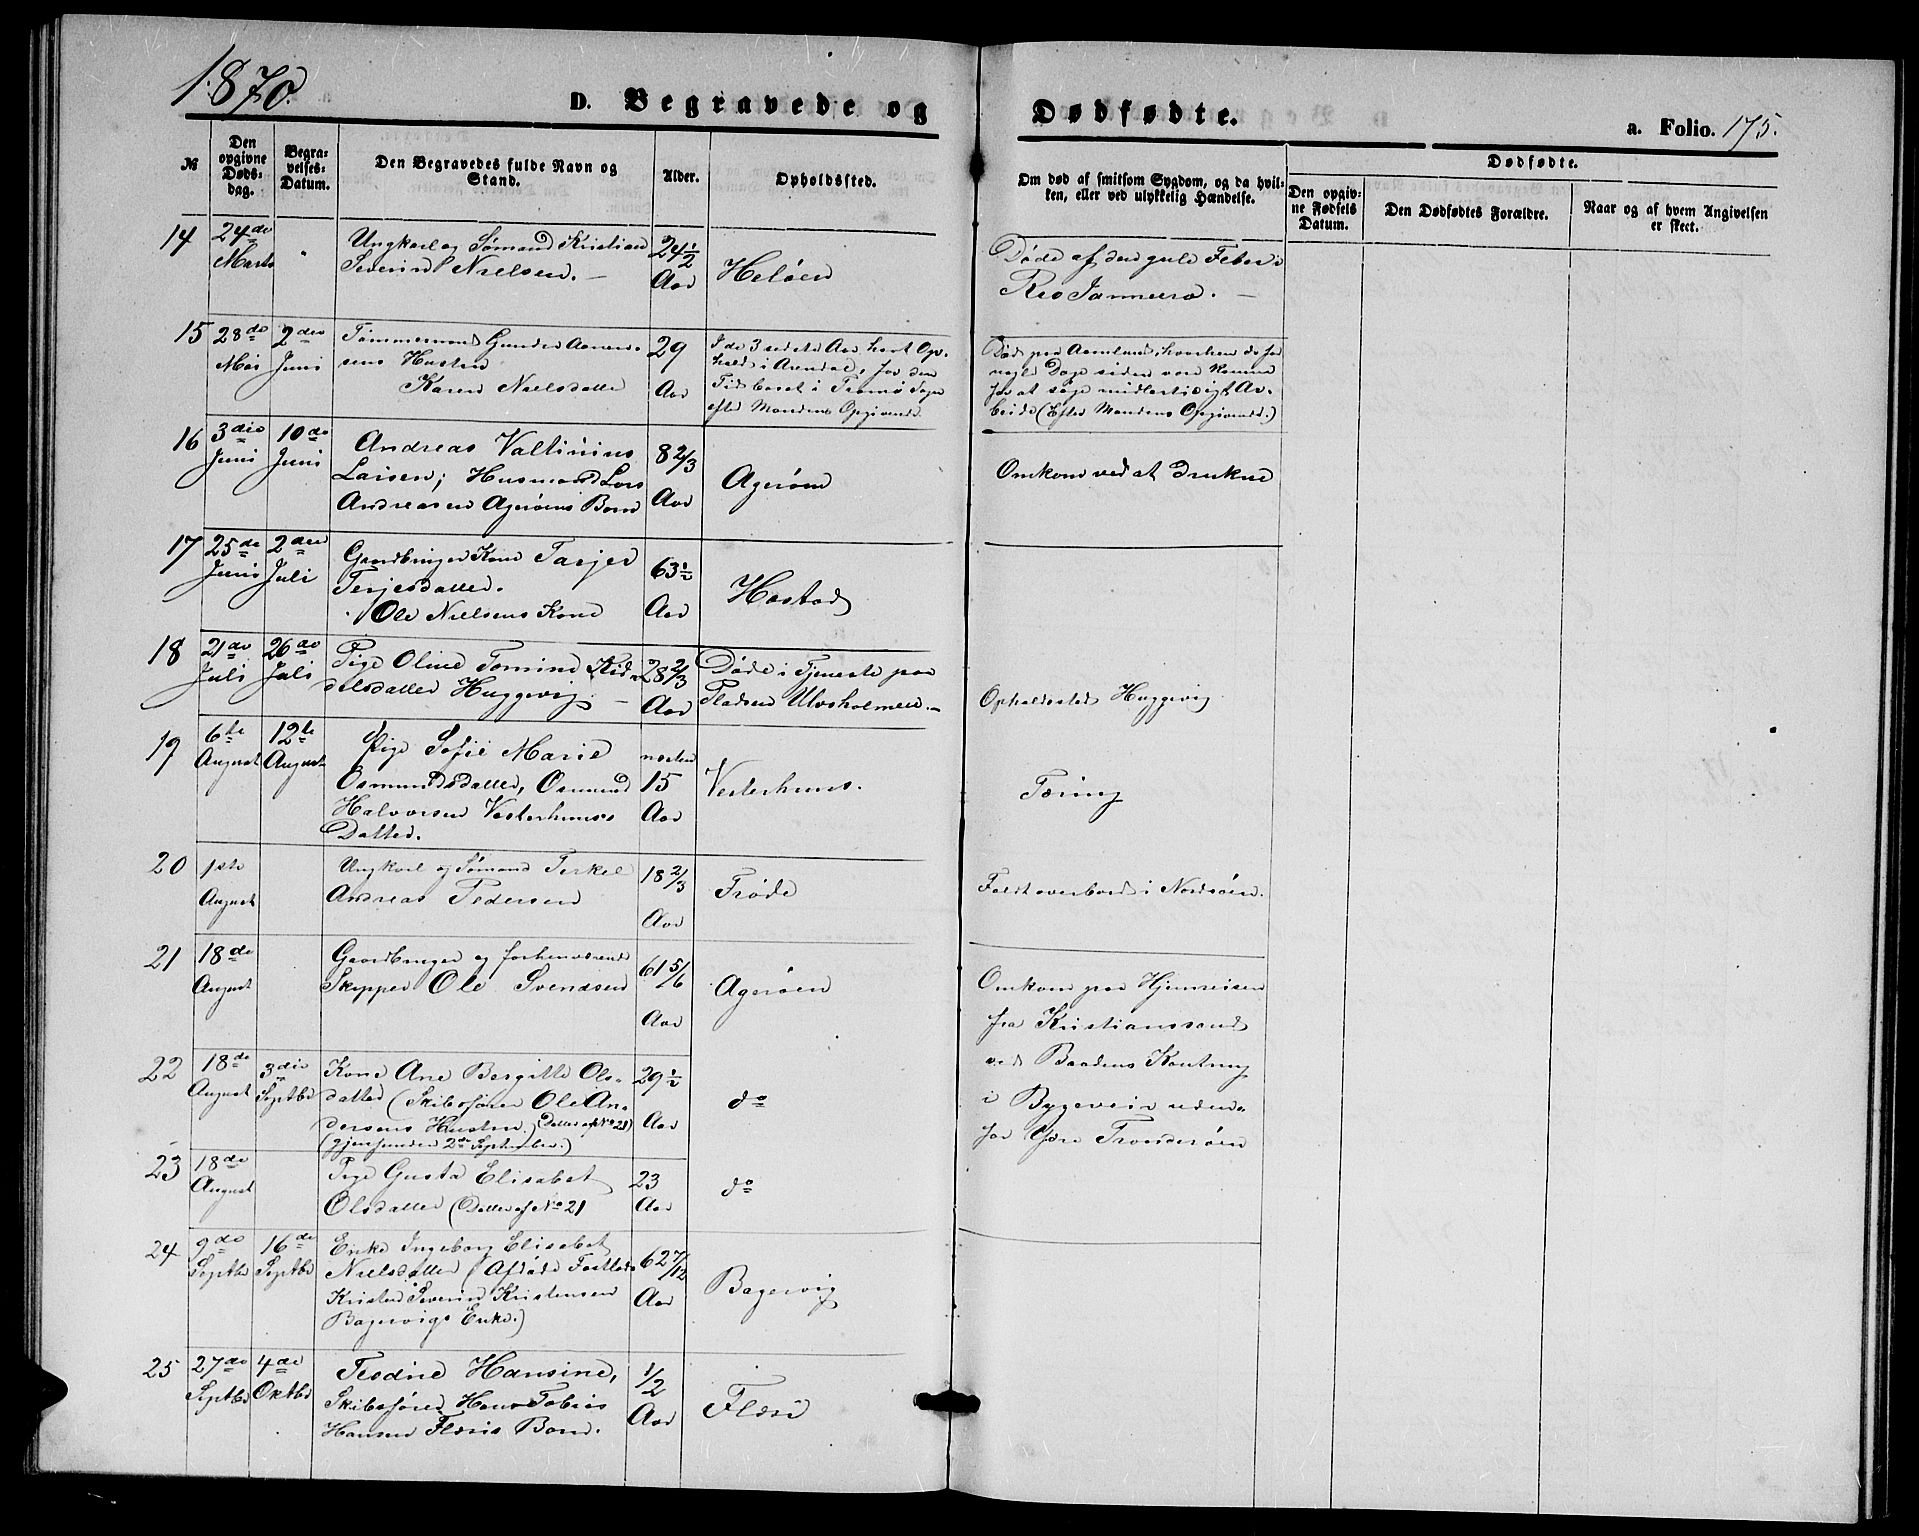 1870.
D. Begravede og Dødfødte.
a. Folio. 175.
№
Den opgivne Døds-dag.
Begra-velses-Datum.
Den Begravedes fulde Navn og Stand.
Alder.
Opholdssted.
Om død af smitsom Sygdom, og da hvil-
ken, eller ved ulykkelig Hændelse.
Dødfødte.
Den opgiv-ne Fødsels Datum.
Den Dødfødtes Forældre.
Naar og af hvem Angivelsen er skeet.
14 24de Marts " Ungkarl og Sømand Kristian
Severin Nielsen. — 24½ Aar Heløen
Døde af den gule Feber i
Rio Janneiro. —
15 28de Mai 2den Juni Tømmermand Gunder Aanen-
sens Hustru
Karen Nielsdatter 29 Aar
I de 3 sidste Aar havt Op-
hold i Arendal, for den
Tid boset i Tromø Sogn
efter Mandens Opgivende.
Død paa Aamland, hvorhen de for
nogle Dage siden vare komne
for at søge midlertidigt Ar-
beide (Efter Mandens Opgivende.)
16 3die Juni 10de Juni Andreas Valtinius
Larsen; Husmand Lars
Andreasen Agerøens Barn 8 2/3 Aar Agerøen
Omkom ved at drukne
17 25de Juni 2den Juli Gaardbruger Kone Tarjer
Terjesdatter.
Ole Nielsens Kone 63½ Aar Hastad
18 21de Juli 26de Juli Pige Oline Tomine Kid-
delsdatter Huggevig. — 28 2/3 Aar Døde i Tjeneste paa
Pladsen Ulvsholmen. —
Opholdssted Huggevig
19 6te August 12te August Pige Sofie Marie
Osmundsdatter, Osmund
Halvorsen Vesterhuus's
Datter. næsten 15 Aar Vesterhuus.
Tæring
20 1ste August Ungkarl og Sømand Terkel
Andreas Pedersen 18 2/3 Aar Frøde
Faldt overbord i Nordsøen.
21 18de August Gaardbruger og forhenværende
Skipper Ole Svendsen 61 5/6 Aar Agerøen
Omkom paa Hjemreisen
fra Kristianssand
ved Baadens Kantring
i Bygeveir uden-
for Ydre
22 18de August 3die Septbr Kone Ane Bergitte Ols-
datter (Skibsfører Ole An-
dersens Hustru. (Datter af No 21)
(gjenfunden 2den September.) 29½ Aar do
23 18de August Pige Gusta Elisabet
Olsdatter (Datter af No 21 23 Aar do
24 9de Septbr 16de Septbr Enke Ingeborg Elisabet
Nielsdatter (Afdøde
Kristen Severin Kristensen
Bagevigs Enke.) 62 7/12 Aar Bagevig
25 27de Septbr 4de Oktbr Teodine Hansine,
Skibsfører Hans Tobias
Hansen Flæris Barn. ½ Aar Flæri